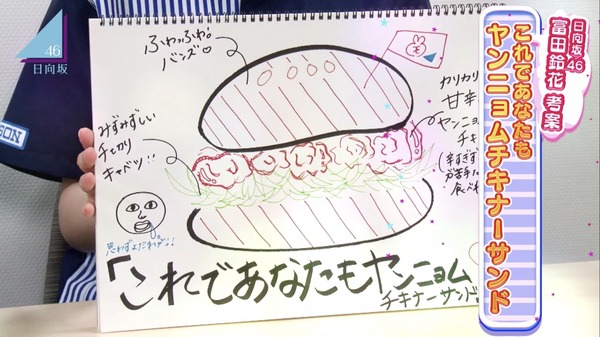 46
日向坂
ふわっふわ!
バンズ♡
カリカリ
甘辛
ヤンニョ
チキ
(辛すぎず
が苦手な
食べれ
みずみずしい
キャベツ!!
思わずよだれが!!
「これであなたもヤンニョム
チキナーサンド
SON
日向坂46
富田鈴花 考案
これであなたも
ヤンニョムチキナーサンド